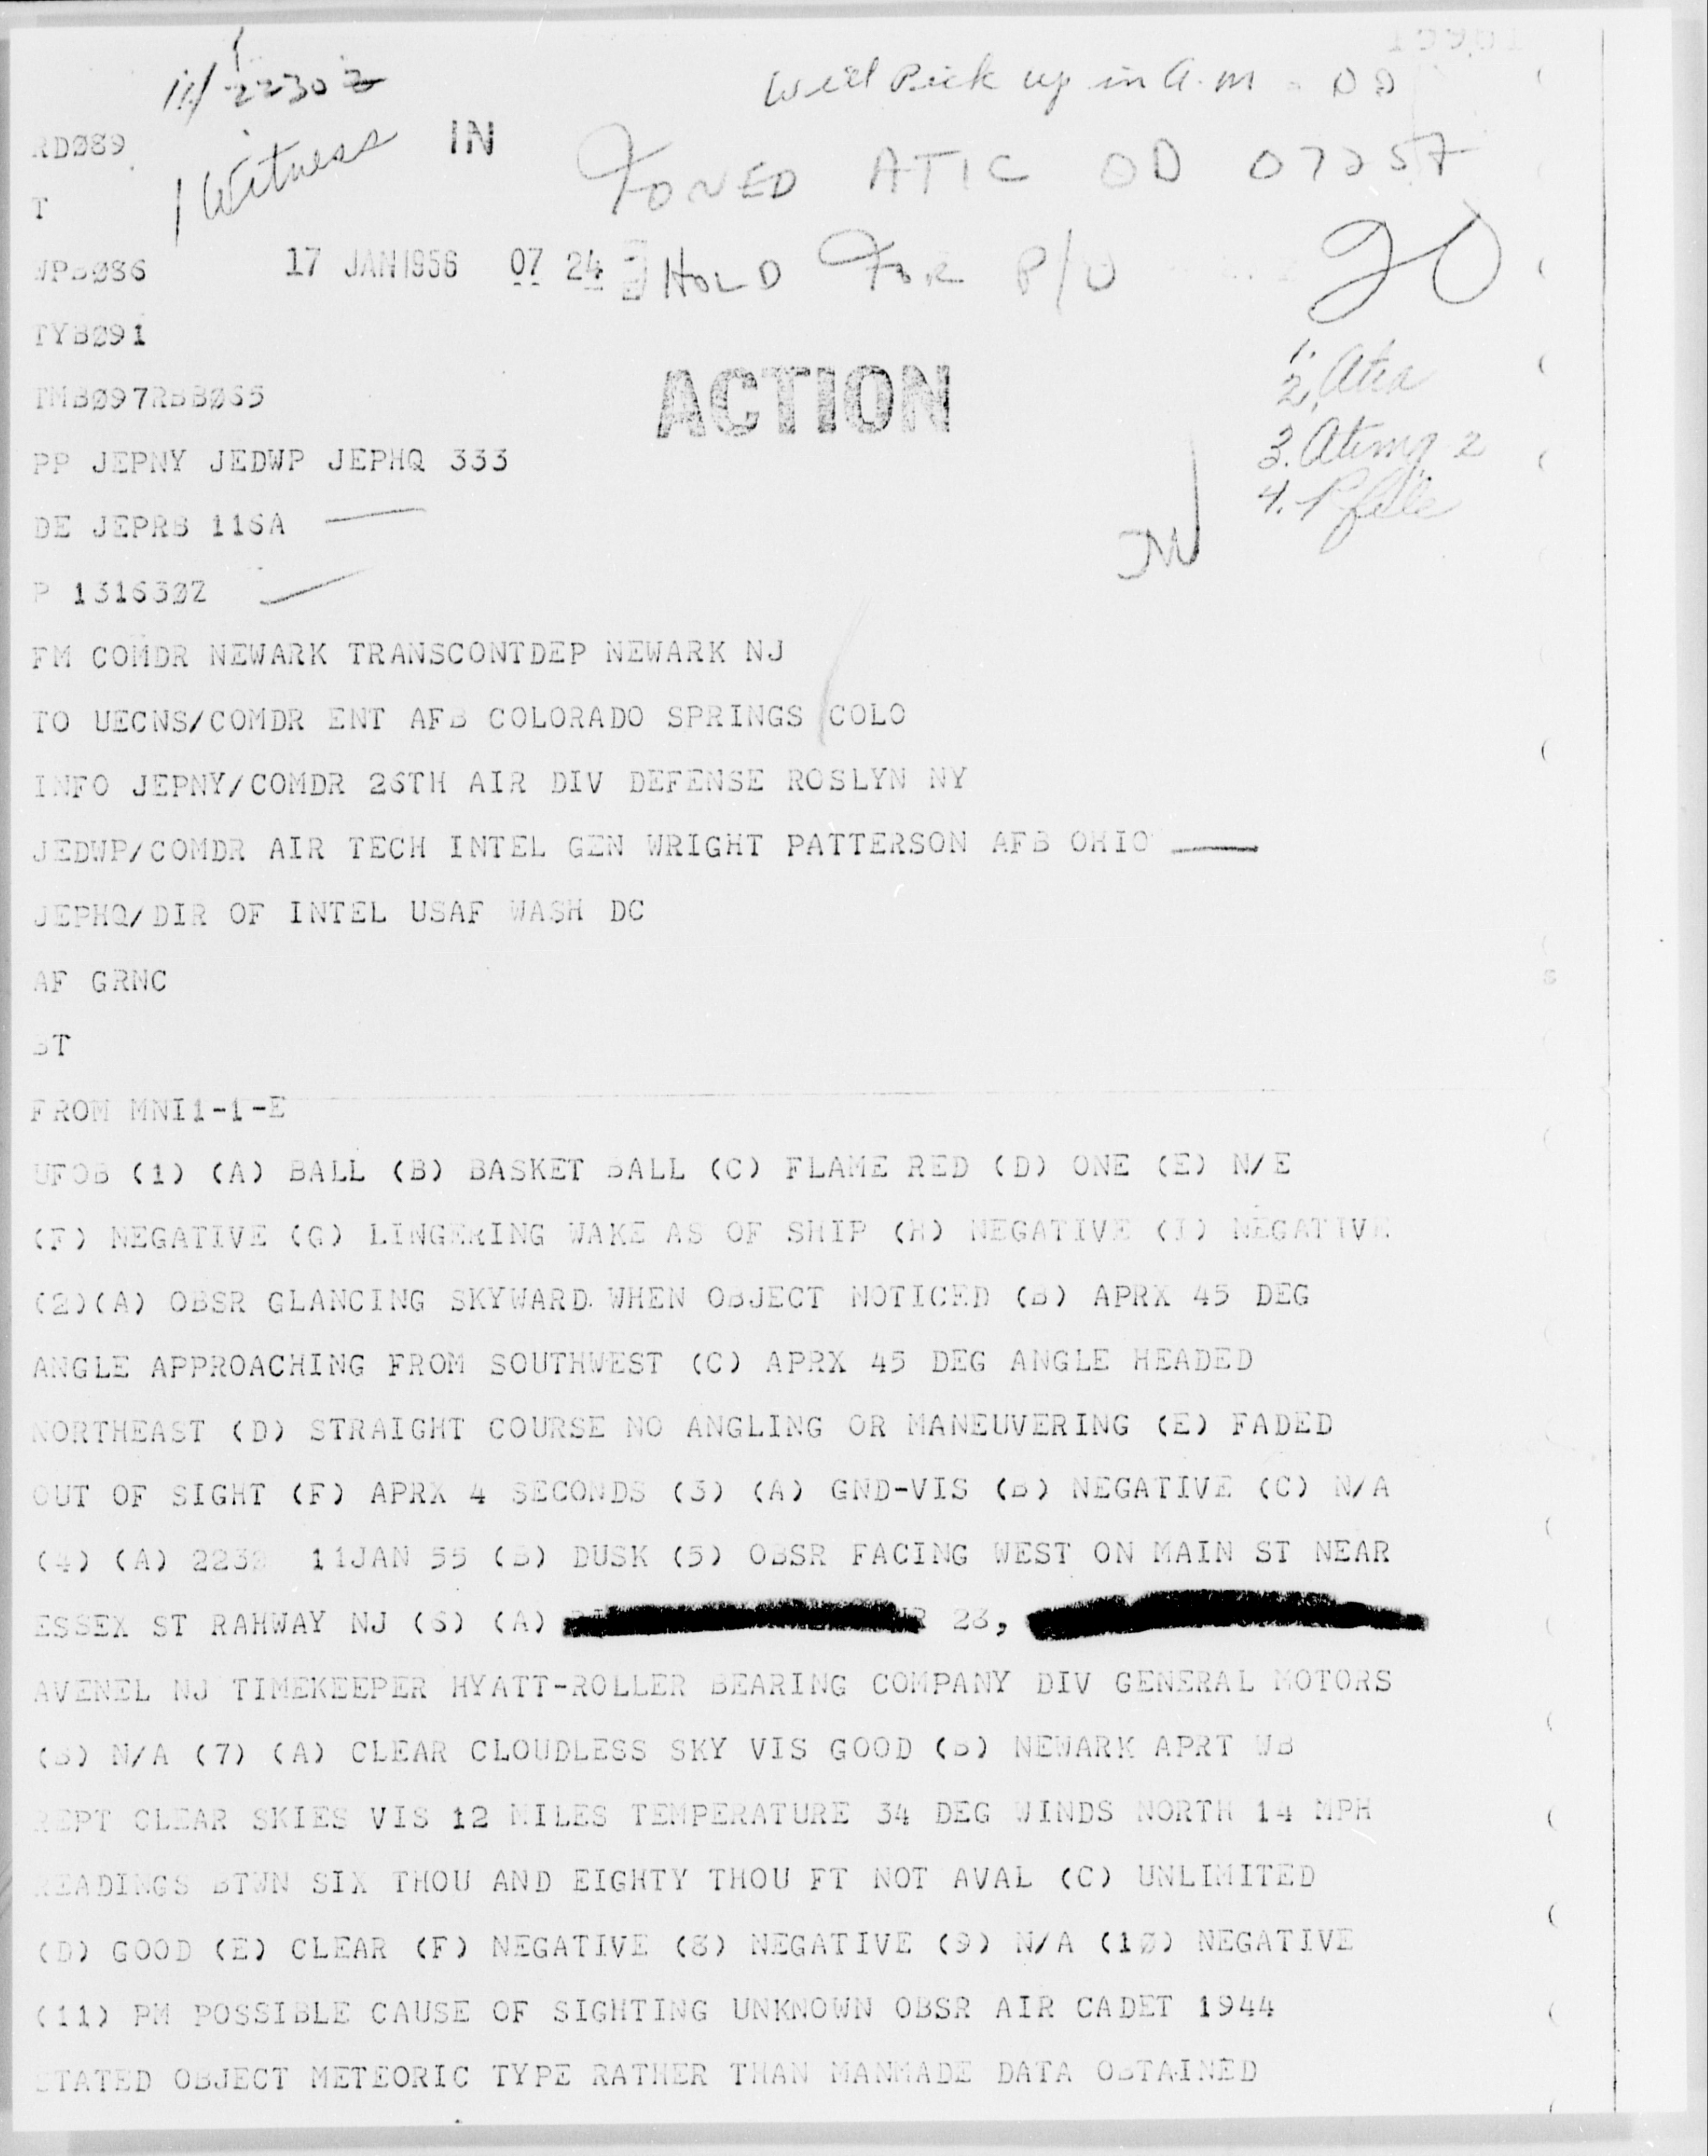 11/2230Z
Will Pick up in a.m - DD
RD089
1 Witness
IN
FONED ATIC OD 0725Z
T
WPB086
17 JAN 1956 07 24
HOLD FOR P/U
20
TYB091
1.
2. Atia
TMB097RBB065
ACTION
3. Atimg 2
PP JEPNY JEDWP JEPHQ 333
4. 1 file
DE JEPRB 116A
P 131630Z
FM COMDR NEWARK TRANSCONTDEP NEWARK NJ
TO UECNS/COMDR ENT AFB COLORADO SPRINGS COLO
INFO JEPNY/COMDR 26TH AIR DIV DEFENSE ROSLYN NY
JEDWP/COMDR AIR TECH INTEL GEN WRIGHT PATTERSON AFB OHIO
JEPHQ/DIR OF INTEL USAF WASH DC
AF GRNC
BT
FROM MNI1-1-E
UFOB (1) (A) BALL (B) BASKET BALL (C) FLAME RED (D) ONE (E) N/E
(F) NEGATIVE (G) LINGERING WAKE AS OF SHIP (H) NEGATIVE (I) NEGATIVE
(2)(A) OBSR GLANCING SKYWARD WHEN OBJECT NOTICED (B) APRX 45 DEG
ANGLE APPROACHING FROM SOUTHWEST (C) APRX 45 DEG ANGLE HEADED
NORTHEAST (D) STRAIGHT COURSE NO ANGLING OR MANEUVERING (E) FADED
OUT OF SIGHT (F) APRX 4 SECONDS (3) (A) GND-VIS (B) NEGATIVE (C) N/A
(4) (A) 2230 11JAN 55 (B) DUSK (5) OBSR FACING WEST ON MAIN ST NEAR
ESSEX ST RAHWAY NJ (6) (A) 23,
AVENEL NJ TIMEKEEPER HYATT-ROLLER BEARING COMPANY DIV GENERAL MOTORS
(B) N/A (7) (A) CLEAR CLOUDLESS SKY VIS GOOD (B) NEWARK APRT WB
REPT CLEAR SKIES VIS 12 MILES TEMPERATURE 34 DEG WINDS NORTH 14 MPH
READINGS BTWN SIX THOU AND EIGHTY THOU FT NOT AVAL (C) UNLIMITED
(D) GOOD (E) CLEAR (F) NEGATIVE (8) NEGATIVE (9) N/A (10) NEGATIVE
(11) PM POSSIBLE CAUSE OF SIGHTING UNKNOWN OBSR AIR CADET 1944
STATED OBJECT METEORIC TYPE RATHER THAN MANMADE DATA OBTAINED